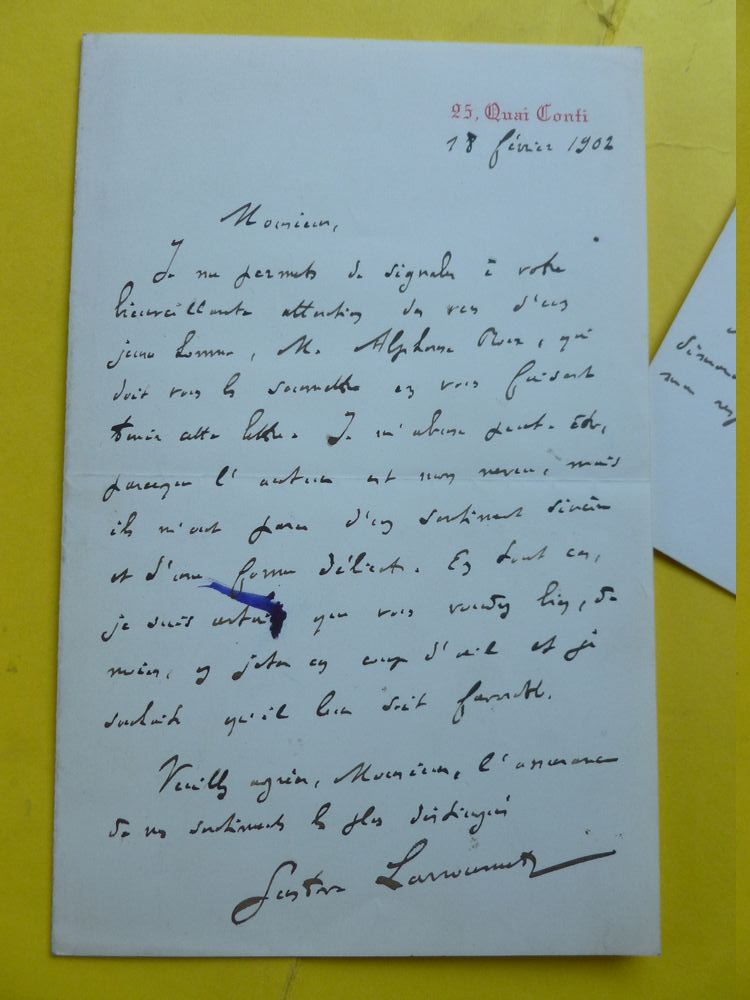 25, Quai Conti
18 février 1902
Monsieur,
Je me permets de signaler à votre
bienveillante attention des vers d'un
jeune homme, M. Alphonse Roux, qui
doit vous les soumettre en vous faisant
tenir cette lettre. Je m'abuse peut-être,
parceque l'auteur est mon neveu, mais
ils m'ont paru d'un sentiment sincère
et d'une forme délicate. En tout cas,
je suis certain que vous voudrez bien, du
moins, y jeter un coup d'œil et je
souhaite qu'il leur soit favorable.
Veuillez agréer, Monsieur, l'assurance
de mes sentiments les plus distingués
Gustave Larroumet